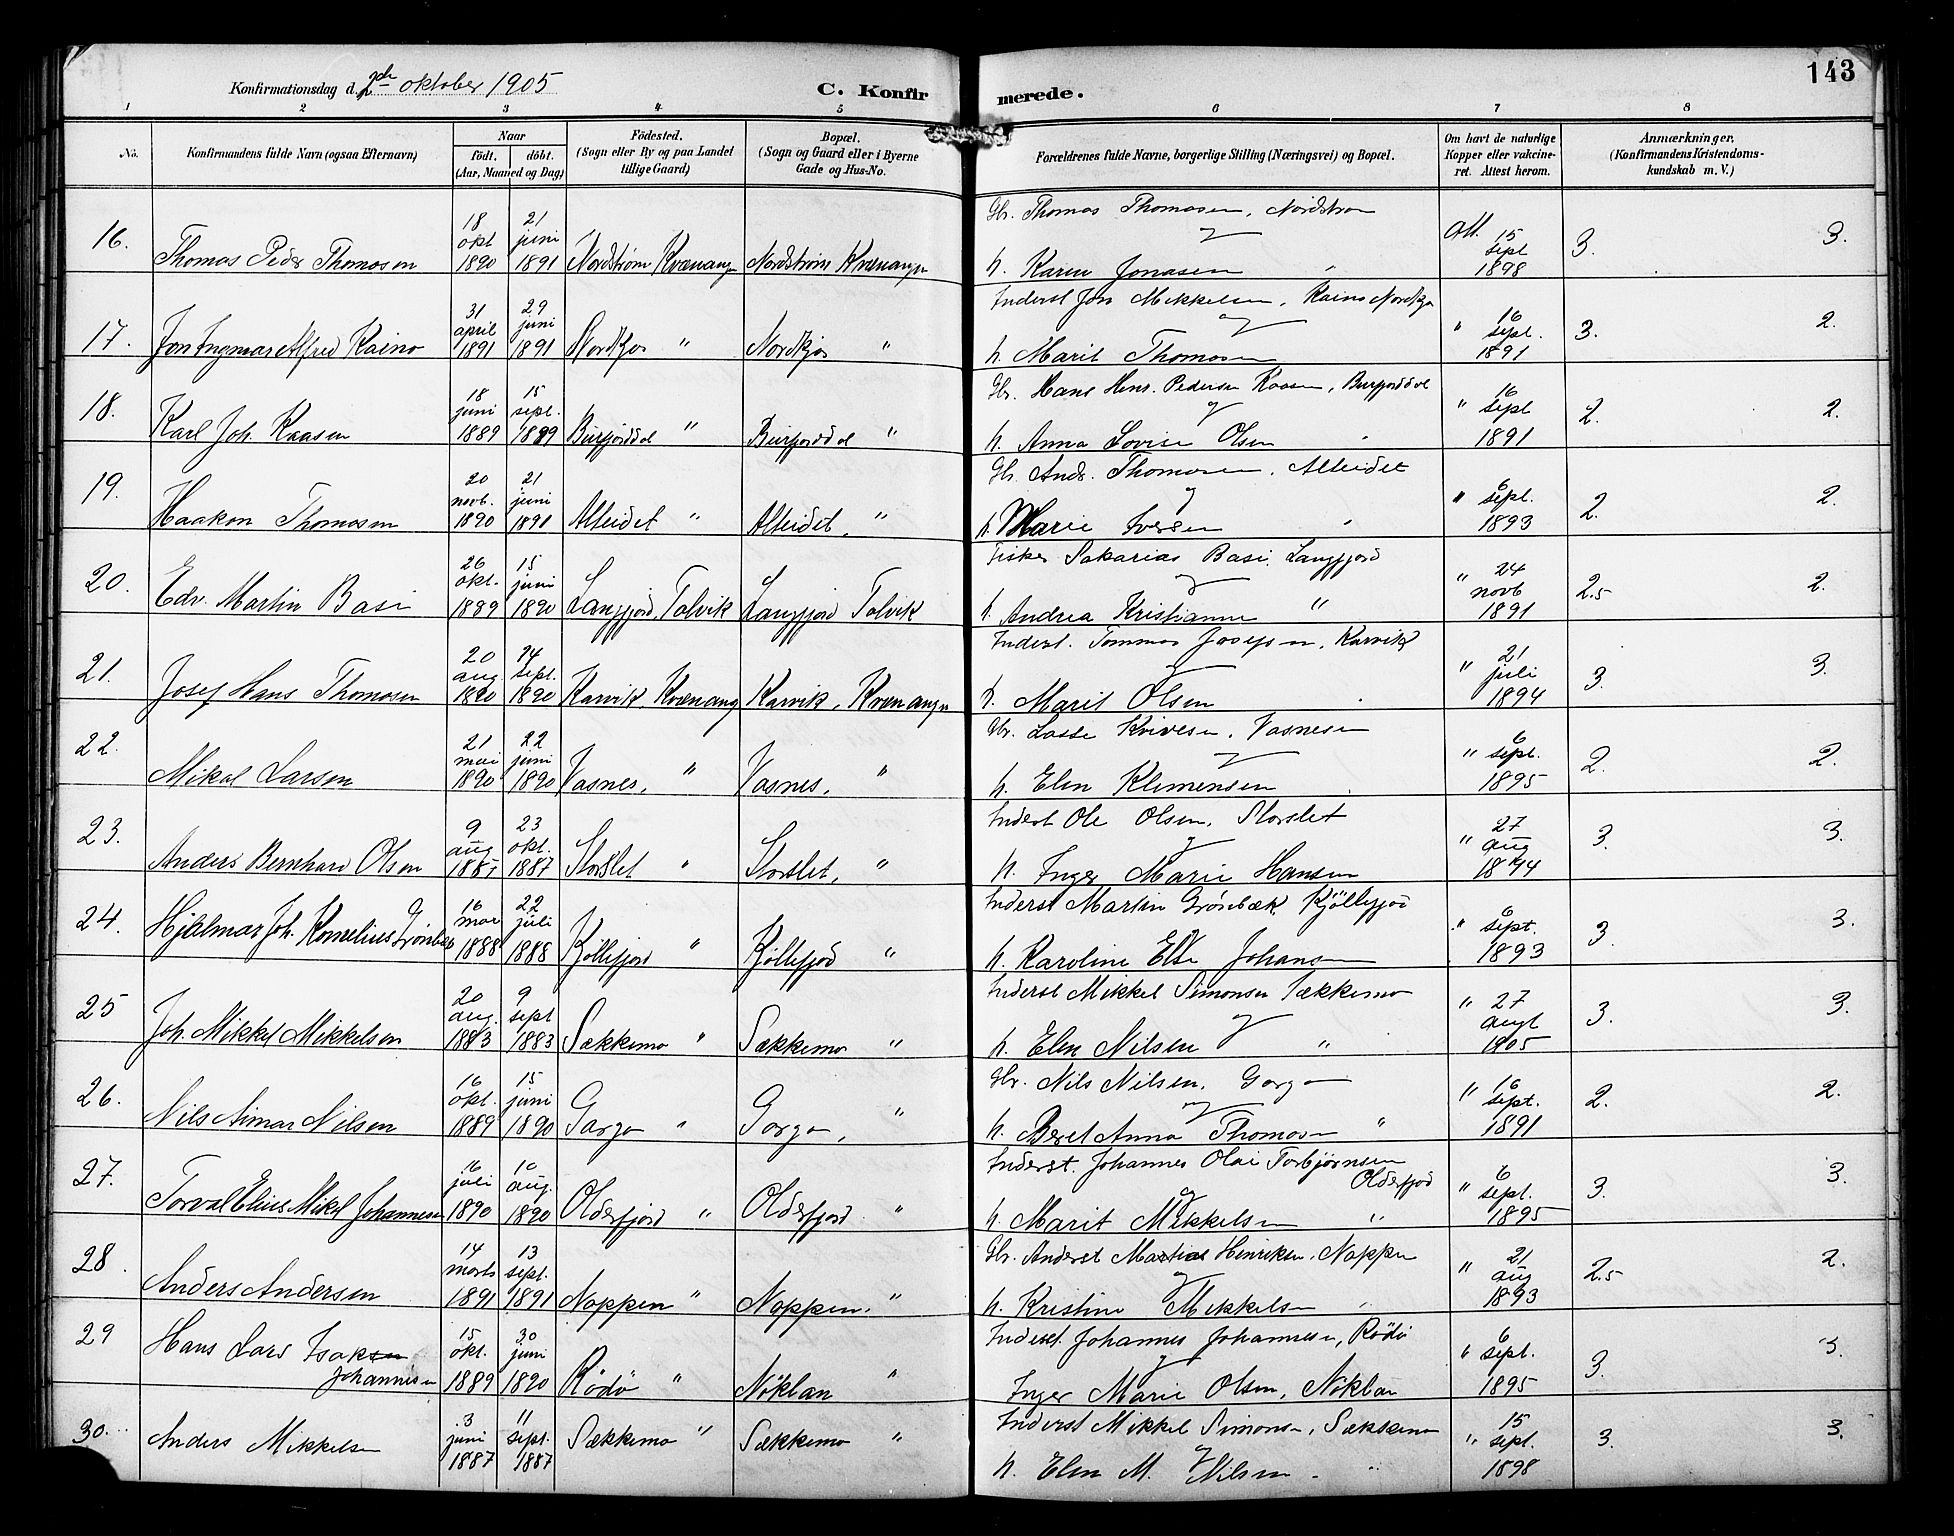 Konfirmationsdag d. 2den oktober 1905
C. Konfirmerede.
143
1 2 3 4 5 6 7 8
No.
Konfirmandens fulde Navn (ogsaa Efternavn)
Naar
födt. döbt.
(Aar, Maaned og Dag)
Födested.
(Sogn eller By og paa Landet
tillige Gaard)
Bopæl.
(Sogn og Gaard eller i Byerne
Gade og Hus-No.
Forældrenes fulde Navne, borgerlige Stilling (Næringsvei) og Bopæl.
Om havt de naturlige
Kopper eller vakcine-
ret. Attest herom.
Anmærkninger,
(Konfirmandens Kristendoms-
kundskab m. V.)
16. Thomas Peder Thomasen 18 okt 1890 21 juni 1891 Nordstrøm Kvænangen Nordstrøm Kvænangen Gbr. Thomas Thomasen, Nordstrøm
og
h. Karen Jonasen " Att. 15 sept 1898 3. 3.
17. Jon Ingmar Alfred Raino 31 april 1891 29 juni 1891 Nordkjos " Nordkjos " Inderst Jon Mikkelsen, Raino Nordkjos
og
h. Marit Thomasen " 16 sept. 1891 3. 2.
18. Karl Joh. Kaasen 18 juni 1889 15 sept. 1889 Burfjorddal " Burfjorddal " Gbr. Hans Henr. Pedersen Kaasen, Burfjorddal
og
h. Anna Lovise Olsen " " 16 sept 1891 2. 2.
19. Haakon Thomasen 20 novb. 1890 21 juni 1891 Alteidet " Alteidet, " Gbr. Ands. Thomasen, Alteidet
og
h. Marie Iversen " " 6 sept. 1893 2. 2.
20. Edv. Martin Basi 26 okt. 1889 15 juni 1890 Langfjord, Talvik Langfjord Talvik Fisker Sakarias Basi, Langfjord
og
h. Andrea Kristianne " " 24 novb 1891 2.5 2.
21. Josef Hans Thomasen 20 aug 1890 14 sept. 1890 Karvik Kvænang Karvik, Kvænangen Inderst. Tommas Josefsen, Karvik
og
h. Marit Olsen " " 21 juli 1894 3. 3.
22. Mikal Larsen 21 mai 1890 22 juni 1890 Vasnes, " Vasnes, " Gbr. Lasse Kvivesen, Vasnesen
og
h. Elen Klemensen " " 6 sept. 1895 2. 2.
23. Anders Bernhard Olsen 9 aug 1887 23 okt. 1887 Storslet " Storslet, " Inderst Ole Olsen, Storslet
og
h. Inger Marie Hansen " 27 aug 1894 3. 3.
24. Hjalmar Joh. Kornelius Grønbæk 16 mar 1888 22 juli 1888 Kjøllefjord " Kjøllefjord " Inderst Martin Grønbæk, Kjöllefjord
og
h. Karoline Else Johansen " 6 sept. 1893 3. 3.
25 Joh. Mikkel Mikkelsen 20 aug. 1883 9 sept 1883 Sækkemo " Sækkemo " Inderst Mikkel Simonsen Sækkemo
og
h. Elen Nilsen " " 27 augt 1905 3. 3.
26. Nils Aimar Nilsen 16 okt. 1889 15 juni 1890 Garga " Garga, " Gbr. Nils Nilsen, Garga
og
h. Beret Anna Thomasen " " 16 sept. 1891 2. 2.
27. Torval Elius Mikel Johannesen 16 juli 1890 10 aug. 1890 Olderfjord " Olderfjord " Inderst. Johannes Olai Torbjørnsen
Olderfjord
og
h. Marit Mikkelsen " " 6 sept. 1895 3. 3.
28. Anders Andersen 14 marts 1891 13 sept. 1891 Noppen " Noppen. " Gbr. Anderst Mathias Henriksen, Noppen
og
h. Kristine Mikkelsen " " 21 aug 1893 2.5 2.
29 Hans Lars Isaksen
Johannesen 15 okt. 1889 30 juni 1890 Rödö " Nöklan " Inderst. Johannes Johannesen, Rödö
og
Inger Marie Olsen, Nöklan " 6 sept. 1895 3. 3.
30. Anders Mikkelsen 3 juni 1887 11 sept. 1887 Sækkemo " Sækkemo " Inderst Mikkel Simonsen, Sækkemo
og
h. Elen M. Nilsen " " 15 sept. 1898 3. 3.